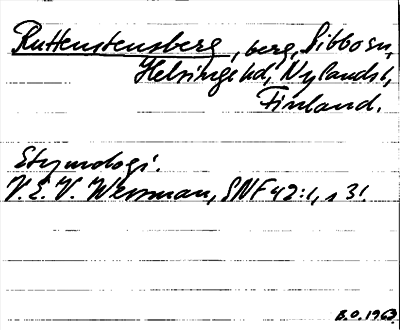 Ruttenstensberg, berg, Sibbo sn,
Helsinge hd, Nylands l,
Finland.
Etymologi.
V. E. V. Wessman, SNF 42:1, s 31.
B.O. 1963